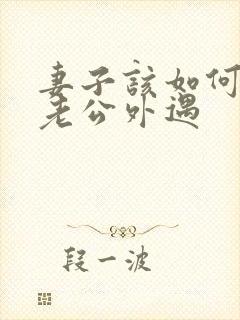 妻子該如何
老公外遇
段一波